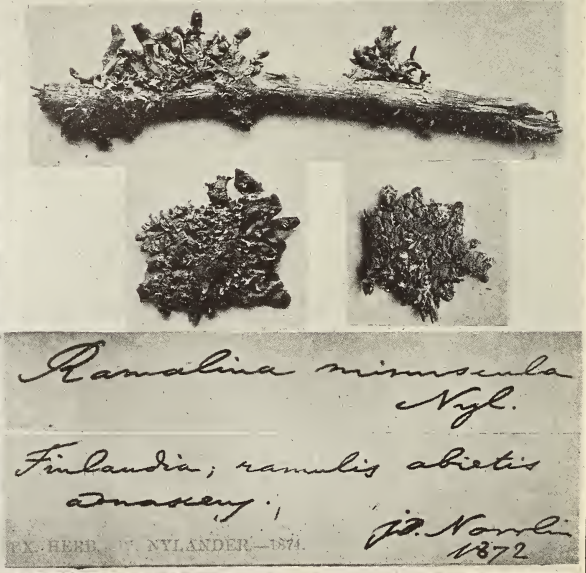 Ramalina minuscula
Nyl.
Finlandia; ramulis abietis
adnascens.
J.P. Norrlin
1872
EX. HERB. W. NYLANDER.—1874.